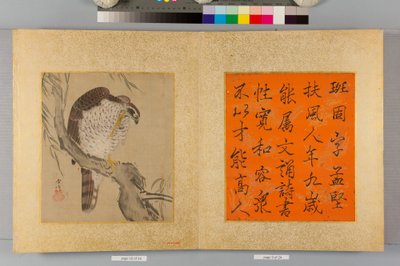 班固字孟堅
扶風人年九歲
能属文誦詩書
性寛和容衆
不以才能高人